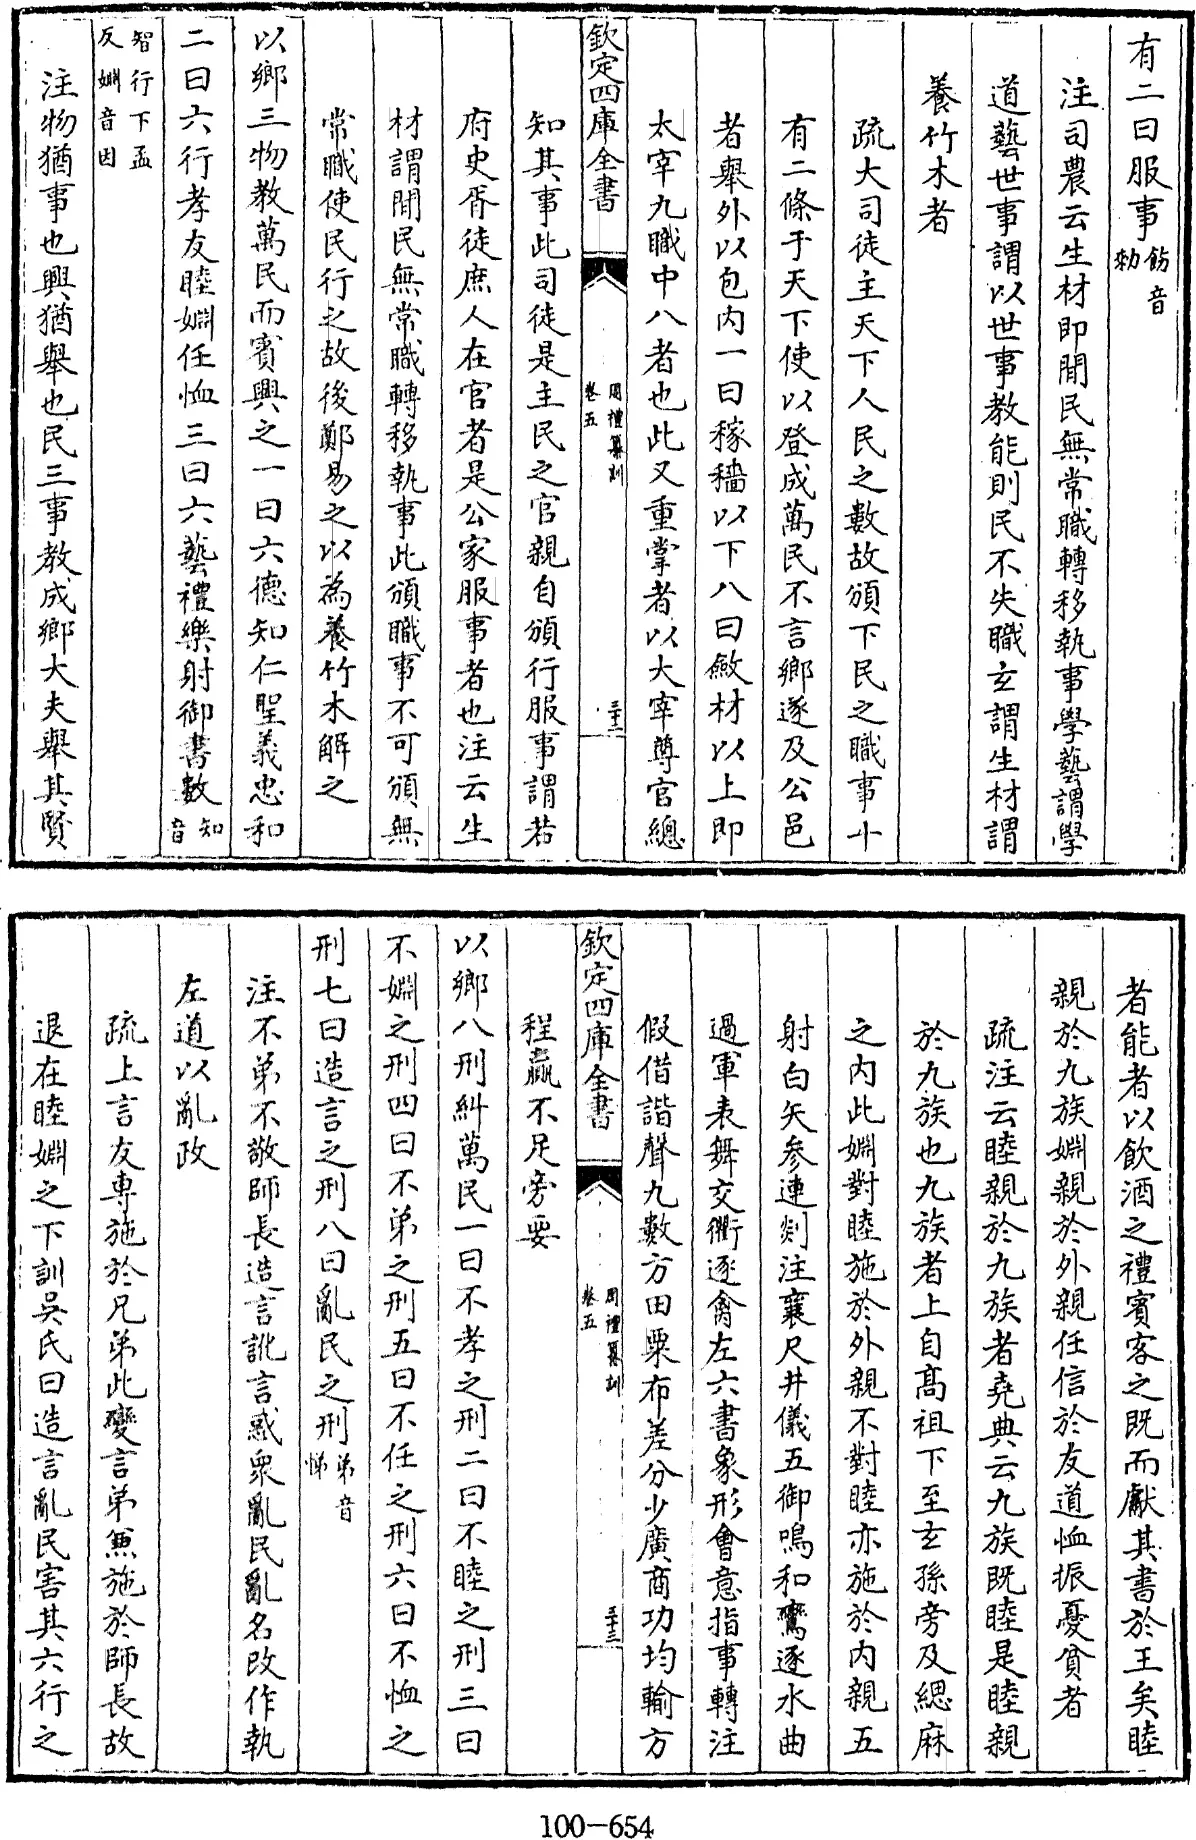 有二曰服事飭音勑
注司農云生材即閒民無常職轉移執事學藝謂學
道藝世事謂以世事教能則民不失職玄謂生材謂
養竹木者
疏大司徒主天下人民之數故頒下民之職事十
有二條于天下使以登成萬民不言鄉遂及公邑
者舉外以包内一曰稼穡以下八曰斂材以上即
太宰九職中八者也此又重掌者以大宰尊官總
欽定四庫全書
周禮纂訓
卷五
三十二
知其事此司徒是主民之官親自頒行服事謂若
府史胥徒庶人在官者是公家服事者也注云生
材謂閒民無常職轉移執事此頒職事不可頒無
常職使民行之故後鄭易之以為養竹木解之
以鄉三物教萬民而賓興之一曰六德知仁聖義忠和
二曰六行孝友睦婣任恤三曰六藝禮樂射御書數知音
智行下孟反婣音因
注物猶事也興猶舉也民三事教成鄉大夫舉其賢
者能者以飲酒之禮賓客之既而獻其書於王矣睦
親於九族婣親於外親任信於友道恤振憂貧者
疏注云睦親於九族者堯典云九族既睦是睦親
於九族也九族者上自高祖下至玄孫旁及緦麻
之内此婣對睦施於外親不對睦亦施於内親五
射白矢參連剡注襄尺井儀五御鳴和鸞逐水曲
過軍表舞交衢逐禽左六書象形會意指事轉注
假借諧聲九數方田粟布差分少廣商功均輸方
欽定四庫全書
周禮纂訓
卷五
三十三
程贏不足旁要
以鄉八刑糾萬民一曰不孝之刑二曰不睦之刑三曰
不婣之刑四曰不弟之刑五曰不任之刑六曰不恤之
刑七曰造言之刑八曰亂民之刑弟音悌
注不弟不敬師長造言訛言惑衆亂民亂名改作執
左道以亂政
疏上言友專施於兄弟此變言弟兼施於師長故
退在睦婣之下訓吳氏曰造言亂民害其六行之
100-654